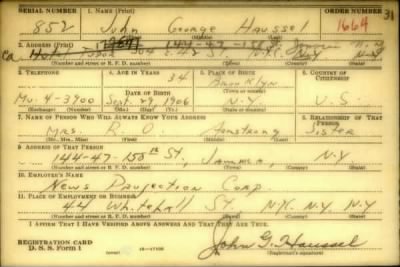 SERIAL NUMBER 1. NAME (Print) ORDER NUMBER 31
852 John George Haussel 1664
(First) (Middle) (Last)
2. ADDRESS (Print)
144-47-158
42 St. N.Y.
(Number and street or R. F. D. number) (Town) (County) (State)
3. TELEPHONE 4. AGE IN YEARS 5. PLACE OF BIRTH 6. COUNTRY OF CITIZENSHIP
34 Brooklyn
DATE OF BIRTH (Town or county)
Mu. 4-3900 Sept. 29, 1906 N.Y. U.S.
(Exchange) (Number) (Mo.) (Day) (Yr.) (State or country)
7. NAME OF PERSON WHO WILL ALWAYS KNOW YOUR ADDRESS 8. RELATIONSHIP OF THAT PERSON
Mrs. R. O. Armstrong Sister
(Mr., Mrs., Miss) (First) (Middle) (Last)
9. ADDRESS OF THAT PERSON
144-47-158th St. Jamaica, N.Y.
(Number and street or R. F. D. number) (Town) (County) (State)
10. EMPLOYER'S NAME
News Projection Corp.
11. PLACE OF EMPLOYMENT OR BUSINESS
44 Whitehall St. N.Y. N.Y. N.Y.
(Number and street or R. F. D. number) (Town) (County) (State)
I AFFIRM THAT I HAVE VERIFIED ABOVE ANSWERS AND THAT THEY ARE TRUE.
REGISTRATION CARD
D. S. S. Form 1 John G. Haussel
(Registrant's signature)